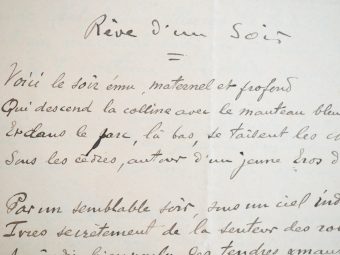 Rêve d'un Soir
Voici le soir ému, maternel et profond
Qui descend la colline avec le manteau bleu
Et dans le parc, là bas, se taisent les
Sous les cèdres, autour d'un jeune Eros
Par un semblable soir, sous un ciel ind
Ivres secrètement de la senteur des ro
les tendres